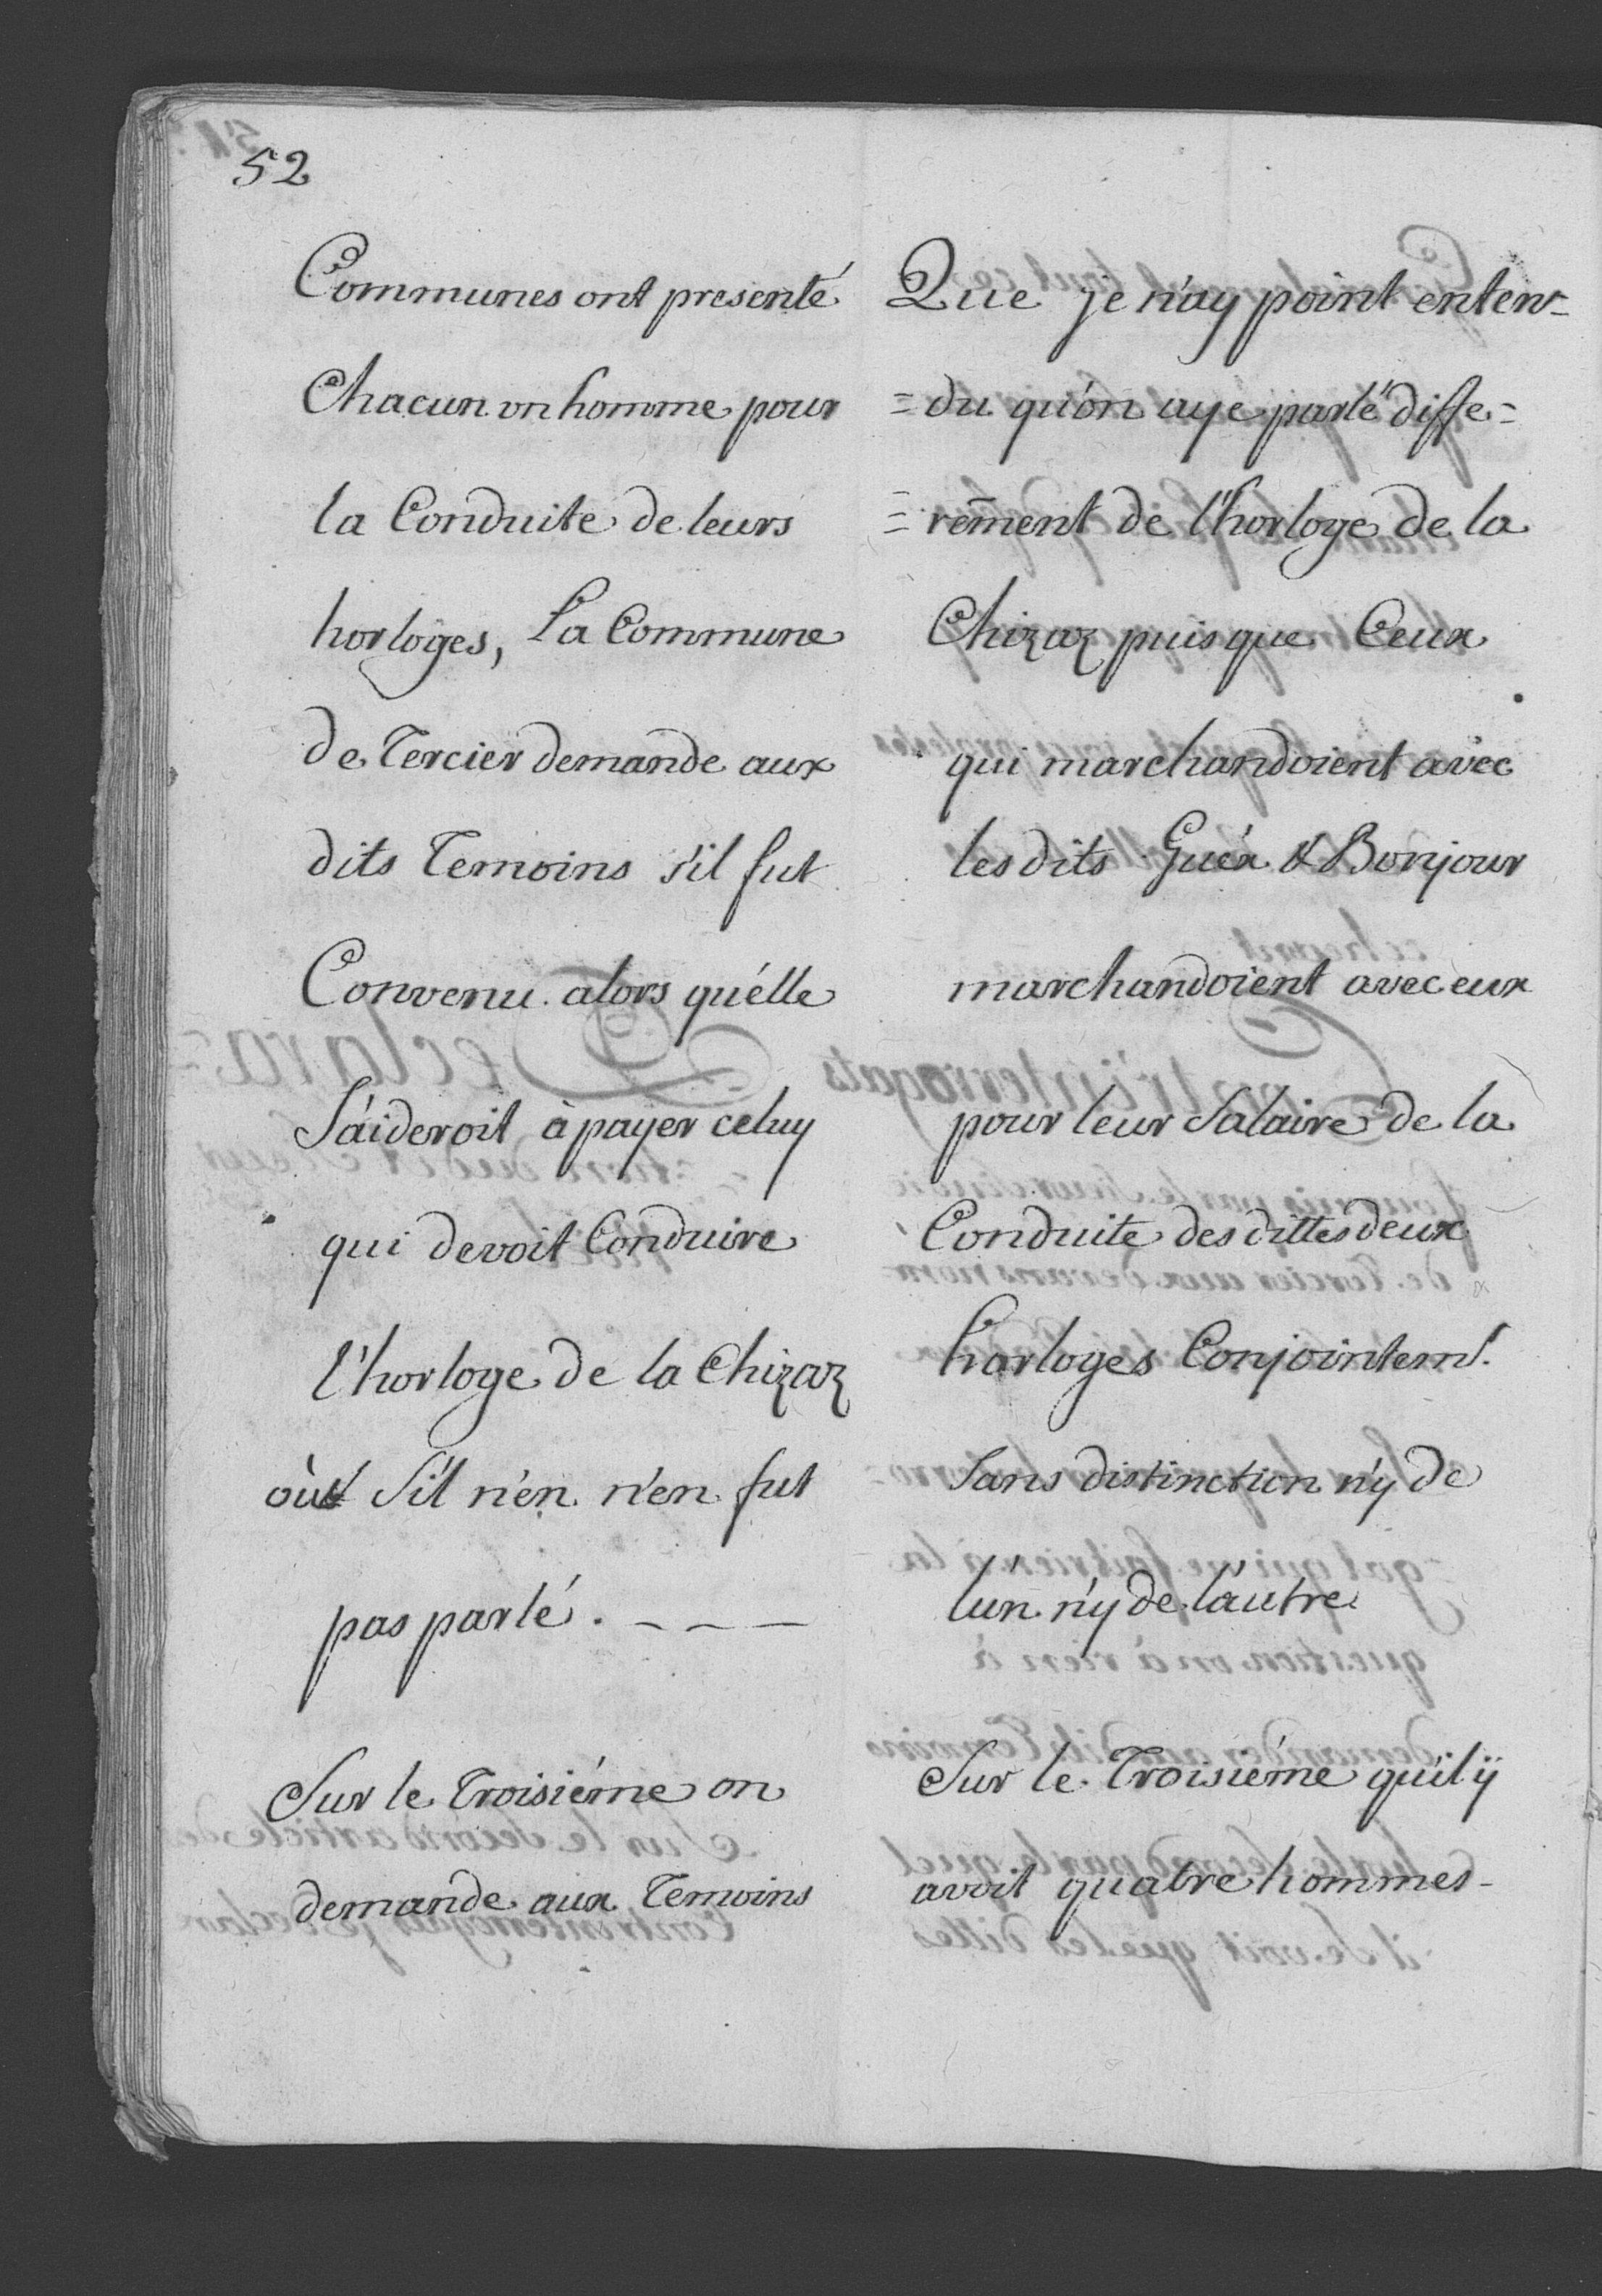 52
Communes ont presenté
Chacun vn homme pour
la Conduite de leurs
horloges, La Commune
de Tercier demande aux
dits Temoins s'il fut
Convenu alors qu'elle
S'aideroit à payer celuy
qui devoit Conduire
l'horloge de la Chizaz
où S'il n'en n'en fut
pas parlé. - - -
Sur le Troisiéme on
demande aux Temoins
Que je n'ay point enten=
=du qu'on aye parlé diffe=
=rem̄ent de l'horloge de la
Chizaz puisque Ceux
qui marchandoient avec
les dits Guéx & Bonjour
marchandoient avec eux
pour leur Salaire de la
Conduite des dittes deux
horloges Conjointemt.
Sans distinction n'y de
l'un n'y de l'autre
Sur le Troisiéme qu'il ÿ
avoit quatre hommes-